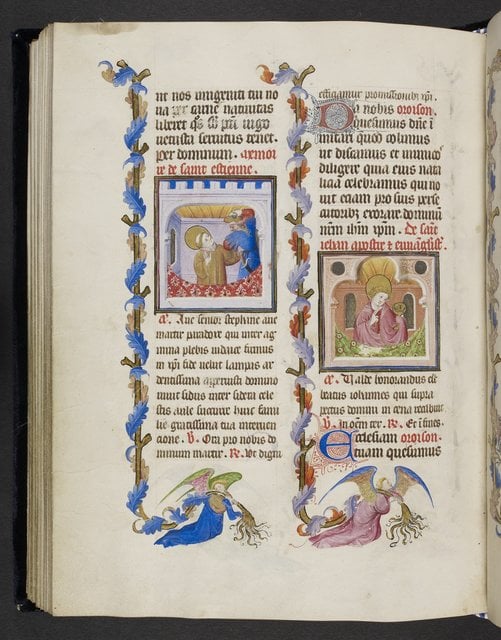 nt nos unigeniti tui no
ua per carne natiuitas
liberet qs sb pti iugo
uetusta seruitus tenet.
per dominum. memoi
re de saint estienne.
a. Aue senior stephane aue
martir paradoxe qui inter ag
mina plebis iudaice firmus
in xpi fide uelut lampas ar
dentissima apperuisti domino
sinus sidus inter sidera cele
stis aule succurre huic fami
lie gratissima tua interuen
cione. V. Ora pro nobis do
mini martir. R. Vt digni
efficiamur promissionibus xpi.
Da nobis oroison.
quesumus dne i
mitari quod colimus
ut discamus et inimicos
diligere quia eius nata
licia celebramus qui no
uit eciam pro suis perse
cutoribus exorare dominum
nrm ihm xpm. De saint
iehan apostre et euuangeliste.
a. Valde honorandus est
beatus iohannes qui supra
pectus domini in cena recubuit
V. In oem ter. R. Et i fines.
Ecclesiam oroison.
tuam quesumus